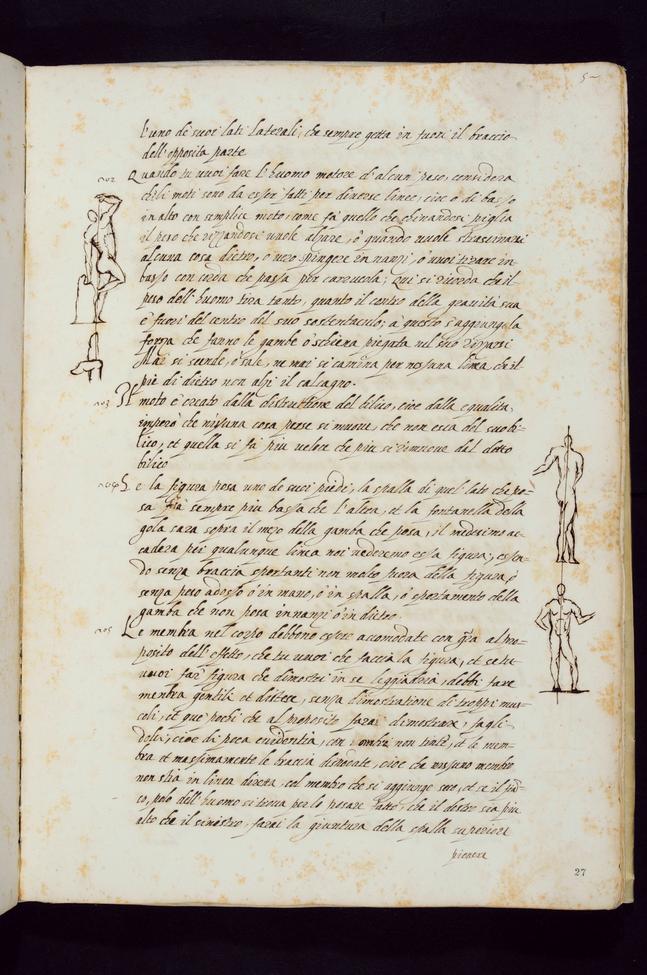 5
l'uno di suoi lati laterali, che sempre getta in fuori il braccio
dell'opposita parte
202 Quando tu vuoi fare l'huomo motore d'alcun peso, considera
ch'li moti sono da esser fatti per diverse linee, cioè o di basso
in alto con semplice moto, come fa quello che chinandosi piglia
il peso che rizzandosi vuole alzare, ò quando vuole strascinarsi
alcuna cosa dietro, ò vero spingere innanzi, ò vuol tirare in
basso con corda che passa per carrucola; Qui si ricorda che il
peso dell'huomo tira tanto, quanto il centro della gravità sua
è fuori del centro del suo sostentaculo; à questo s'aggiunge la
forza che fanno le gambe ò schiena piegata nel suo rizzarsi
Mai si scende, ò sale, ne mai si camina per nessuna linea, ch'il
piè di dietro non alzi il calcagno.
203 Il moto è creato dalla distruttione del bilico, cioe dalla equalità,
imperò che nissuna cosa perse si muove, che non esca del suo bi-
lico, et quella si fa piu veloce che piu si rimuove dal detto
bilico
204 Se la figura posa uno de suoi piedi, la spalla di quel lato che po-
sa fia sempre piu bassa che l'altra, et la fontanella della
gola sara sopra il mezo della gamba che posa, il medesimo ac-
cadera per qualunque linea noi vederemo essa figura, essen-
do senza braccia sportanti non molto fuora della figura, ò
senza peso adosso ò in mano, ò in spalla, ò sportamento della
gamba che non posa innanzi ò in dietro
205 Le membra nel corpo debbono essere accomodate con gra al pro-
posito dell'effetto, che tu vuoi che faccia la figura, et se tu
vuoi far figura che dimostri in se leggiadria, debbi fare
membra gentili et distese, senza dimostratione di troppi mus-
coli, et que pochi che al proposito farai dimostrare, fagli
dolci, cioe di poca evidentia, con ombre non tinte, et le mem-
bra et massimamente le braccia disnodate, cioe che nissuno membro
non stia in linea diretta, col membro che si aggiunge seco, et se il fian-
co, polo dell'huomo si trova per lo posare fatto, che il destro sia piu
alto che il sinistro, farai la giuntura della spalla superiore
piovere
27